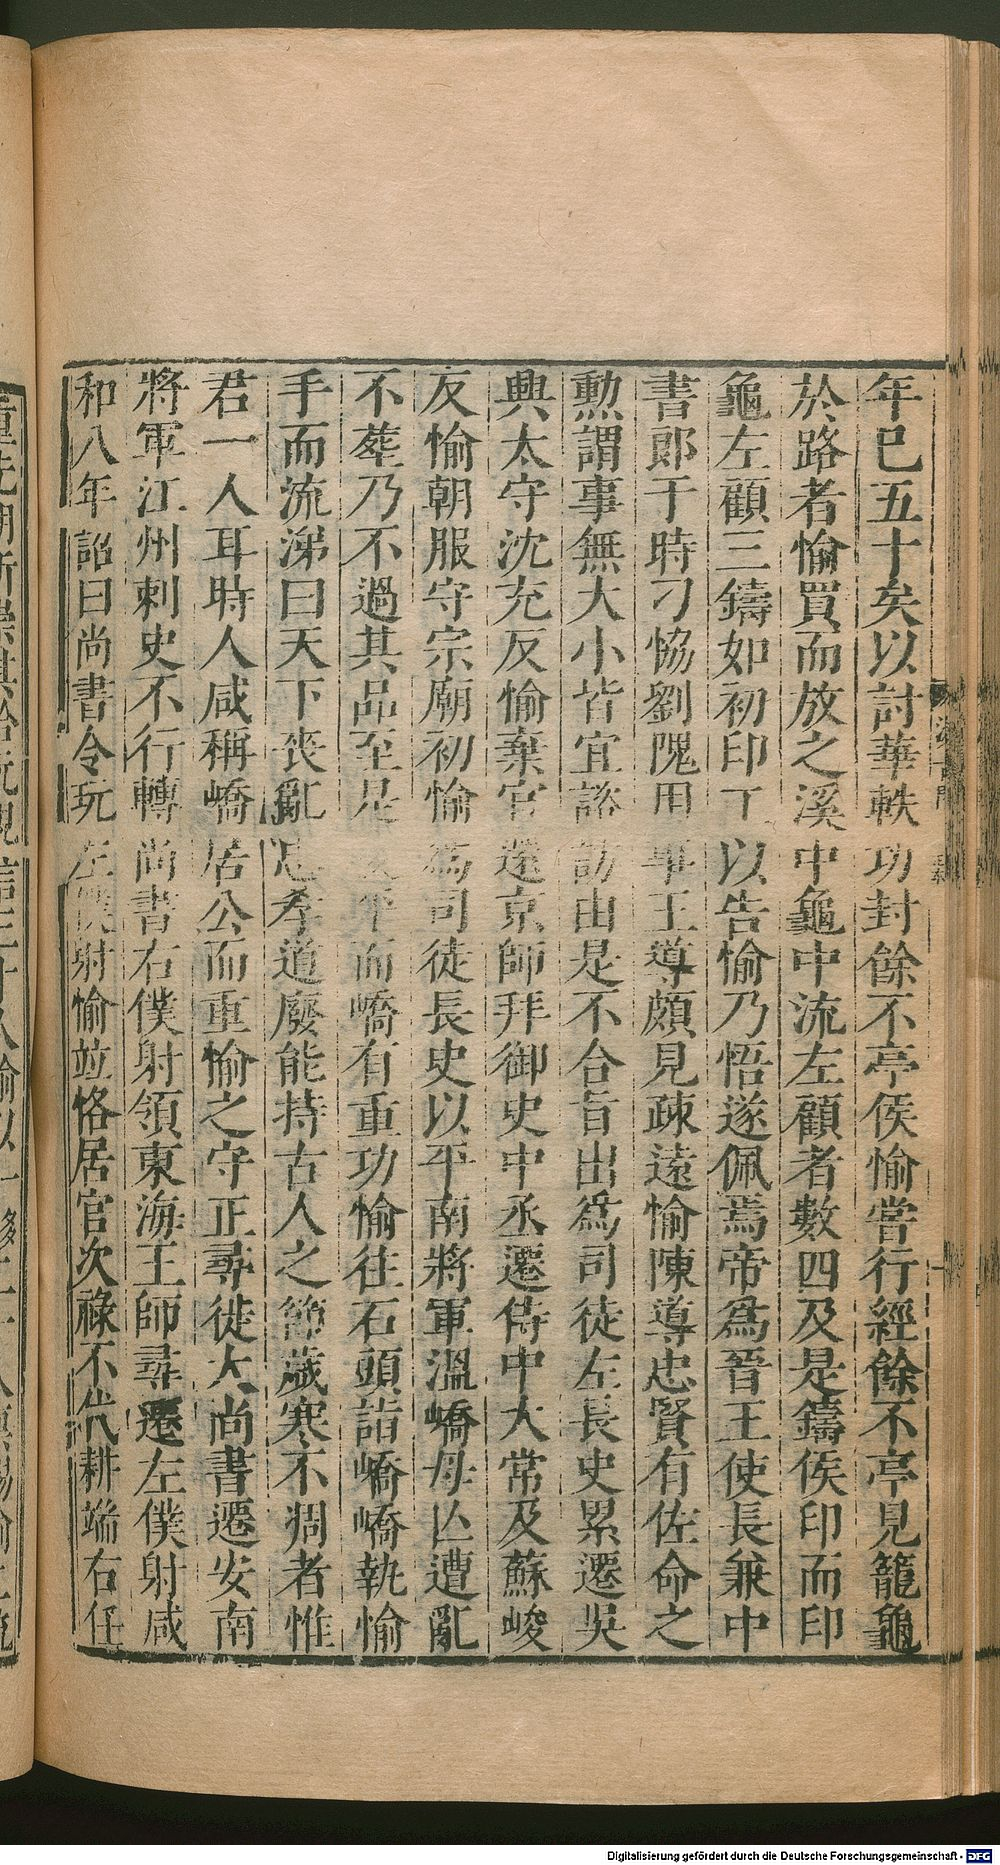 年已五十矣以討華軼功封餘不亭侯愉嘗行經餘不亭見籠龜
於路者愉買而放之溪中龜中流左顧者數四及是鑄侯印而印
龜左顧三鑄如初印工以告愉乃悟遂佩焉帝為晉王使長兼中
書郎于時刁協劉隗用事王導頗見疎遠愉陳導忠賢有佐命之
勲謂事無大小皆宜諮訪由是不合旨出爲司徒左長史累遷吳
興太守沈充反愉棄官還京師拜御史中丞遷侍中太常及蘇峻
反愉朝服守宗廟初愉爲司徒長史以平南將軍溫嶠母亾遭亂
不葬乃不過其品至是峻平而嶠有重功愉往石頭詣嶠嶠執愉
手而流涕曰天下喪亂忠孝道廢能持古人之節歲寒不凋者惟
君一人耳時人咸稱嶠居公而重愉之守正尋徙大尚書遷安南
將軍江州刺史不行轉尚書右僕射領東海王師尋遷左僕射咸
和八年詔曰尚書令玩左僕射愉竝恪居官次祿不代耕端右任
Digitalisierung gefördert durch die Deutsche Forschungsgemeinschaft - DFG